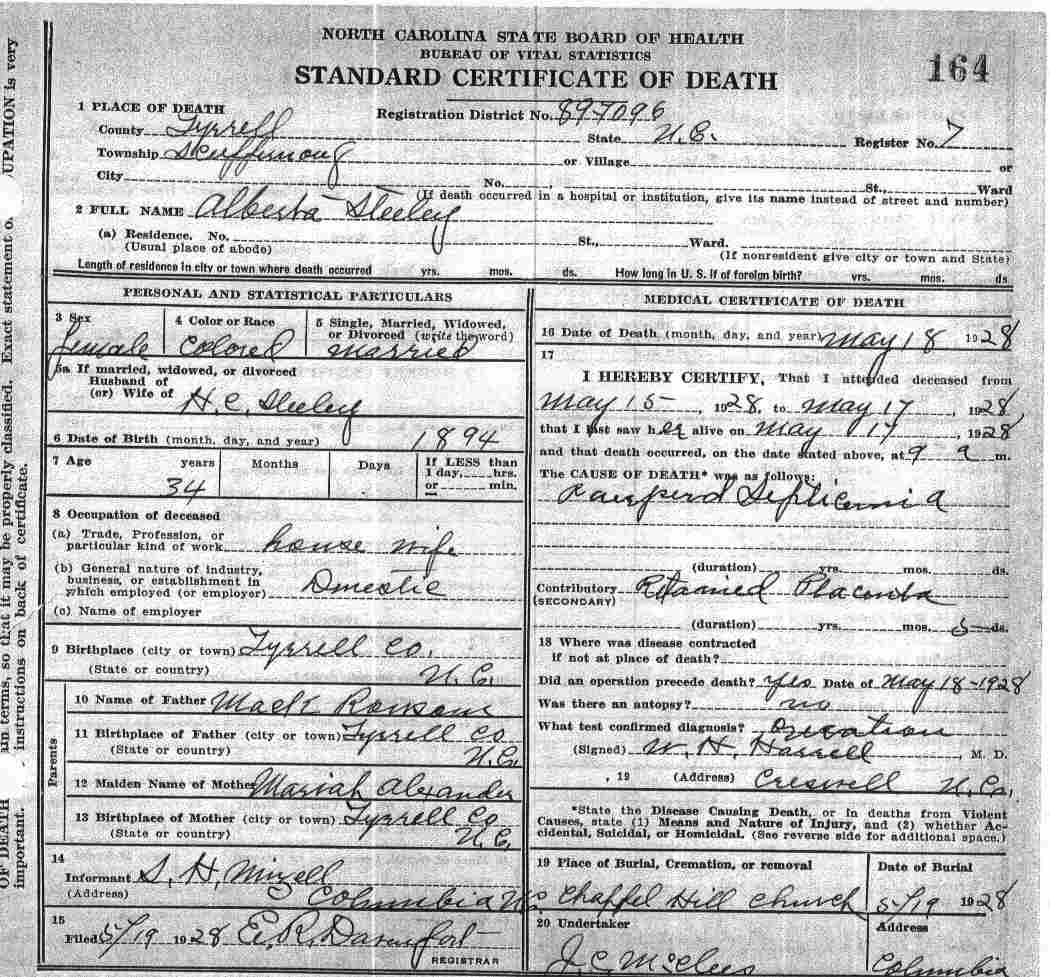 NORTH CAROLINA STATE BOARD OF HEALTH
BUREAU OF VITAL STATISTICS
STANDARD CERTIFICATE OF DEATH
164
1 PLACE OF DEATH
Registration District No. 89-7096
County Tyrrell State N.C. Register No. 7
Township or Village or
City No. , St., Ward
(If death occurred in a hospital or institution, give its name instead of street and number)
2 FULL NAME Alberta Sleeley
(a) Residence. No. St., Ward.
(Usual place of abode) (If nonresident give city or town and State)
Length of residence in city or town where death occurred yrs. mos. ds. How long in U. S. if of foreign birth? yrs. mos. ds.
PERSONAL AND STATISTICAL PARTICULARS
3 Sex
female
4 Color or Race
Colored
5 Single, Married, Widowed,
or Divorced (write the word)
married
5a If married, widowed, or divorced
Husband of
(or) Wife of H.C. Sleeley
6 Date of Birth (month, day, and year) 1894
7 Age
years
34
Months
Days
If LESS than
1 day, hrs.
or min.
8 Occupation of deceased
(a) Trade, Profession, or
particular kind of work house wife
(b) General nature of industry,
business, or establishment in
which employed (or employer) Dmestic
(c) Name of employer
9 Birthplace (city or town) Tyrrell Co.
(State or country) N.C.
Parents
10 Name of Father Mack
11 Birthplace of Father (city or town) Tyrrell Co
(State or country) N.C.
12 Maiden Name of Mother Mariah Alexander
13 Birthplace of Mother (city or town) Tyrrell Co
(State or country) N.C.
14
Informant S. H. Mizell
(Address) Columbia N.C.
15
Filed 5/19 1928 E. R. Davenport
REGISTRAR
MEDICAL CERTIFICATE OF DEATH
16 Date of Death (month, day, and year) May 18 1928
17
I HEREBY CERTIFY, That I attended deceased from
May 15 , 1928, to May 17 , 1928,
that I last saw her alive on May 17 , 1928
and that death occurred, on the date stated above, at 9 a m.
The CAUSE OF DEATH* was as follows:
Septicemia
(duration) yrs. mos. ds.
Contributory Retained Placenta
(SECONDARY)
(duration) yrs. mos. 5 ds.
18 Where was disease contracted
if not at place of death?
Did an operation precede death? yes Date of May 18-1928
Was there an autopsy? no
What test confirmed diagnosis?
(Signed) W. H. Harrell , M. D.
, 19 (Address) Creswell N.C.
*State the Disease Causing Death, or in deaths from Violent
Causes, state (1) Means and Nature of Injury, and (2) whether Ac-
cidental, Suicidal, or Homicidal. (See reverse side for additional space.)
19 Place of Burial, Cremation, or removal
Chappel Hill Church
Date of Burial
5/19 1928
20 Undertaker
Address
Columbia
UPATION is very
Exact statement o.
in terms, so that it may be properly classified.
instructions on back of certificate.
OF DEATH
important.